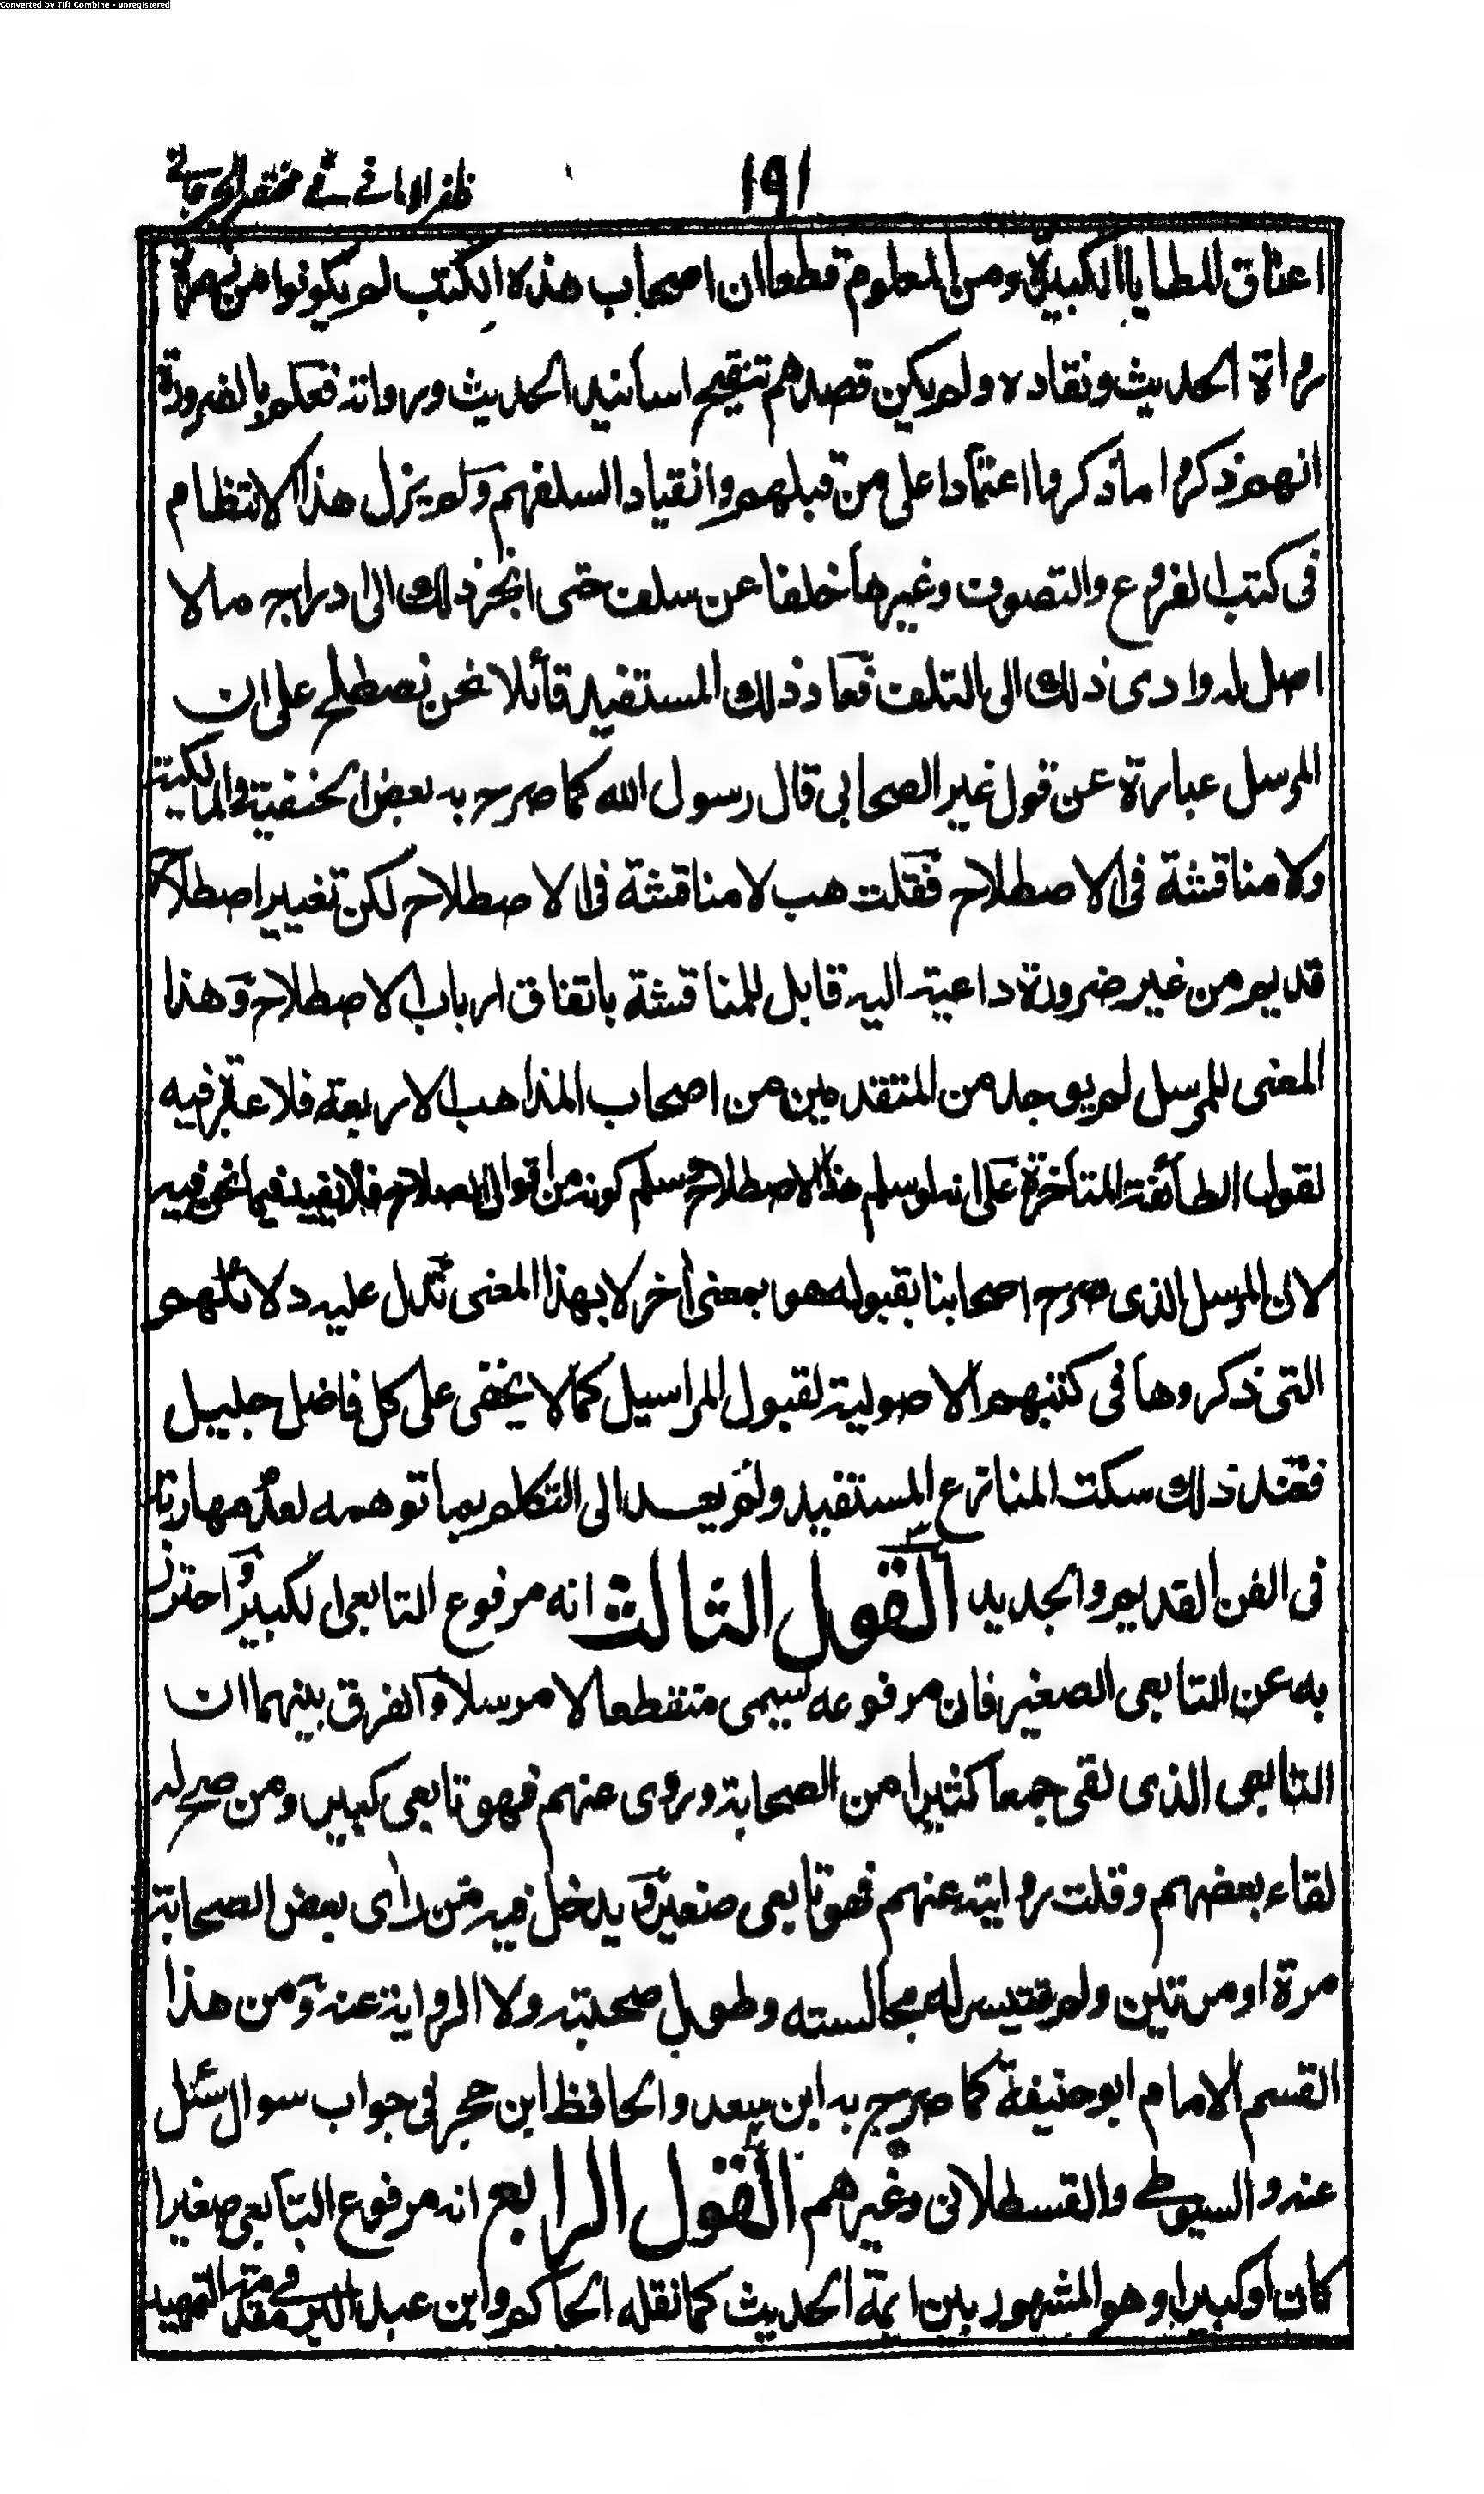 Converted by Tiff Combine - unregistered
١٩١ ظفر الامانے فے مختصر الجرجانے
اعناق المطايا الكبيرة ومن المعلوم قطعا ان اصحاب هذه الكتب لم يكونوا من مهرة
رواة الحديث ونقاده ولم يكن قصدهم تنقيح اسانيد الحديث ورواته فعلم بالضرورة
انهم ذكروا ما ذكروا اعتمادا على من قبلهم وانقيادا لسلفهم ولم يزل هذا الانتظام
فى كتب الفروع والتصوف وغيرها خلفا عن سلف حتى انجر ذلك الى ادراج ما لا
اصل له وادى ذلك الى التلف فعاد ذلك المستفيد قائلا نحن نصطلح على ان
المرسل عبارة عن قول غير الصحابى قال رسول الله كما صرح به بعض الحنفية والمالكية
ولا مناقشة فى الاصطلاح فقلت هب لا مناقشة فى الاصطلاح لكن تغيير اصطلاح
قديم من غير ضرورة داعية اليه قابل للمناقشة باتفاق ارباب الاصطلاح وهذا
المعنى للمرسل لم يوجد من المتقدمين من اصحاب المذاهب الاربعة فلا عبرة فيه
لقول الطائفة المتأخرة على انه لو سلم هذا الاصطلاح وسلم كونه من اقوال الصلاح فلا يفيد فيما نحن فيه
لان المرسل الذى صرح اصحابنا بقبوله هو بمعنى أخر لا بهذا المعنى تدل عليه دلائلهم
التى ذكروها فى كتبهم الاصولية لقبول المراسيل كما لا يخفى على كل فاضل جليل
فعند ذلك سكت المنازع المستفيد ولم يعد الى التكلم بما توهمه لعدم مهارته
فى الفن القديم والجديد القول الثالث انه مرفوع التابعى الكبير واحترز
به عن التابعى الصغير فان مرفوعه يسمى منقطعا لا مرسلا والفرق بينهما ان
التابعى الذى لقى جمعا كثيرا من الصحابة وروى عنهم فهو تابعى كبير ومن صح له
لقاء بعضهم وقلت روايته عنهم فهو تابعى صغير ويدخل فيه من رأى بعض الصحابة
مرة او مرتين ولم يتيسر له مجالسته وطول صحبته ولا الرواية عنه ومن هذا
القسم الامام ابو حنيفة كما صرح به ابن سعد والحافظ ابن حجر فى جواب سوال سئل
عنه والسيوطے والقسطلانى وغيرهم القول الرابع انه مرفوع التابعى صغيرا
كان او كبيرا وهو المشهور بين ائمة الحديث كما نقله الحاكم وابن عبد البر فے مقدمة التمهيد